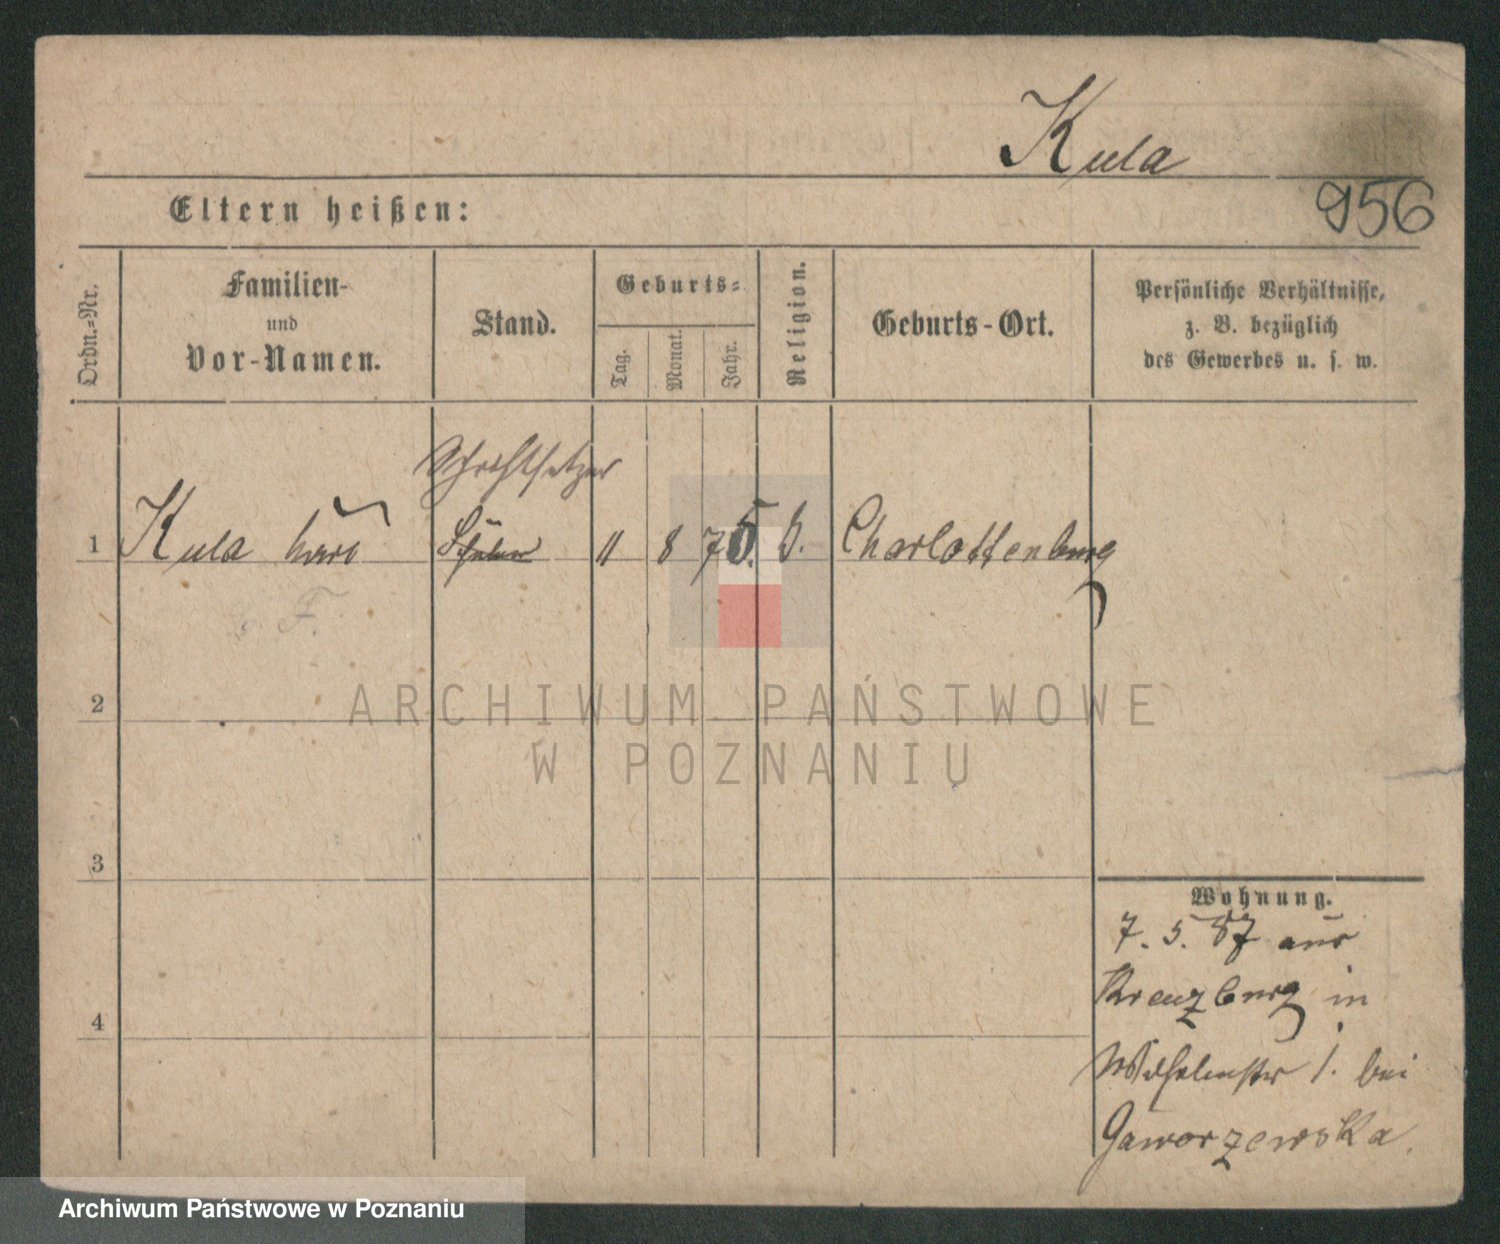 Kula
956
Eltern heißen:
Ordn.-Nr.
Familien-
und
Vor-Namen.
Stand.
Geburts-
Tag.
Monat.
Jahr.
Religion.
Geburts-Ort.
Persönliche Verhältnisse,
z. B. bezüglich
des Gewerbes u. s. w.
Schriftsetzer
1 Kula 11 8 75. Charlottenburg
2
3
4
Wohnung.
7. 5. 87 aus
Kreuzburg in
Wilhelmstr 1. bei
Gaworzewska.
ARCHIWUM PAŃSTWOWE
W POZNANIU
Archiwum Państwowe w Poznaniu